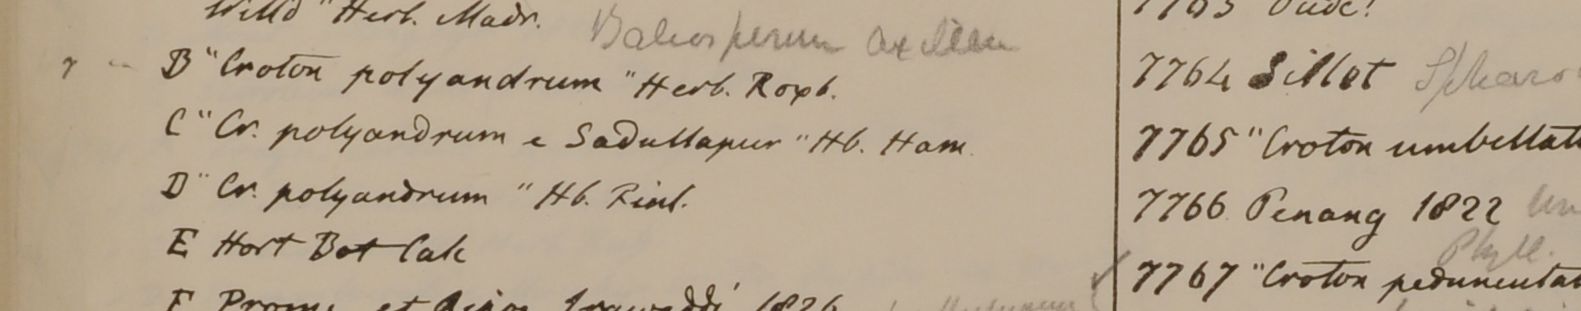 Willd" Herb. Madr.
Baliospermum axillare
B "Croton polyandrum" Herb. Roxb.
C "Cr. polyandrum e Sadullapur" Hb. Ham
D "Cr. polyandrum" Hb. Finl.
E Hort Bot Calc
F Prome et Ripas Irawaddi 1826
7763 Oude!
7764 Sillet
7765 "Croton umbellat
7766 Penang 1822
Phyll.
7767 "Croton peduncula